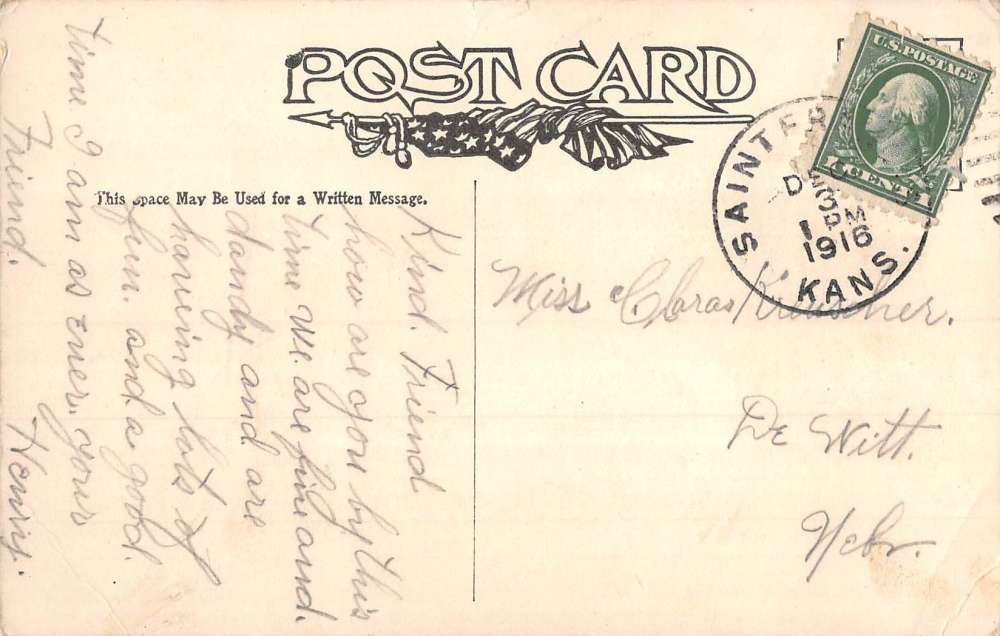 POST CARD
U.S. POSTAGE
SAINT
D
3
1 PM
1916
KANS.
This Space May Be Used for a Written Message.
Kind. Friend
how are you by this
time We. are fine and.
dandy and are
having lots of
fun. and a good.
time I am as ener. your
Friend. Henry.
Miss Clara
De Witt.
Nebr.